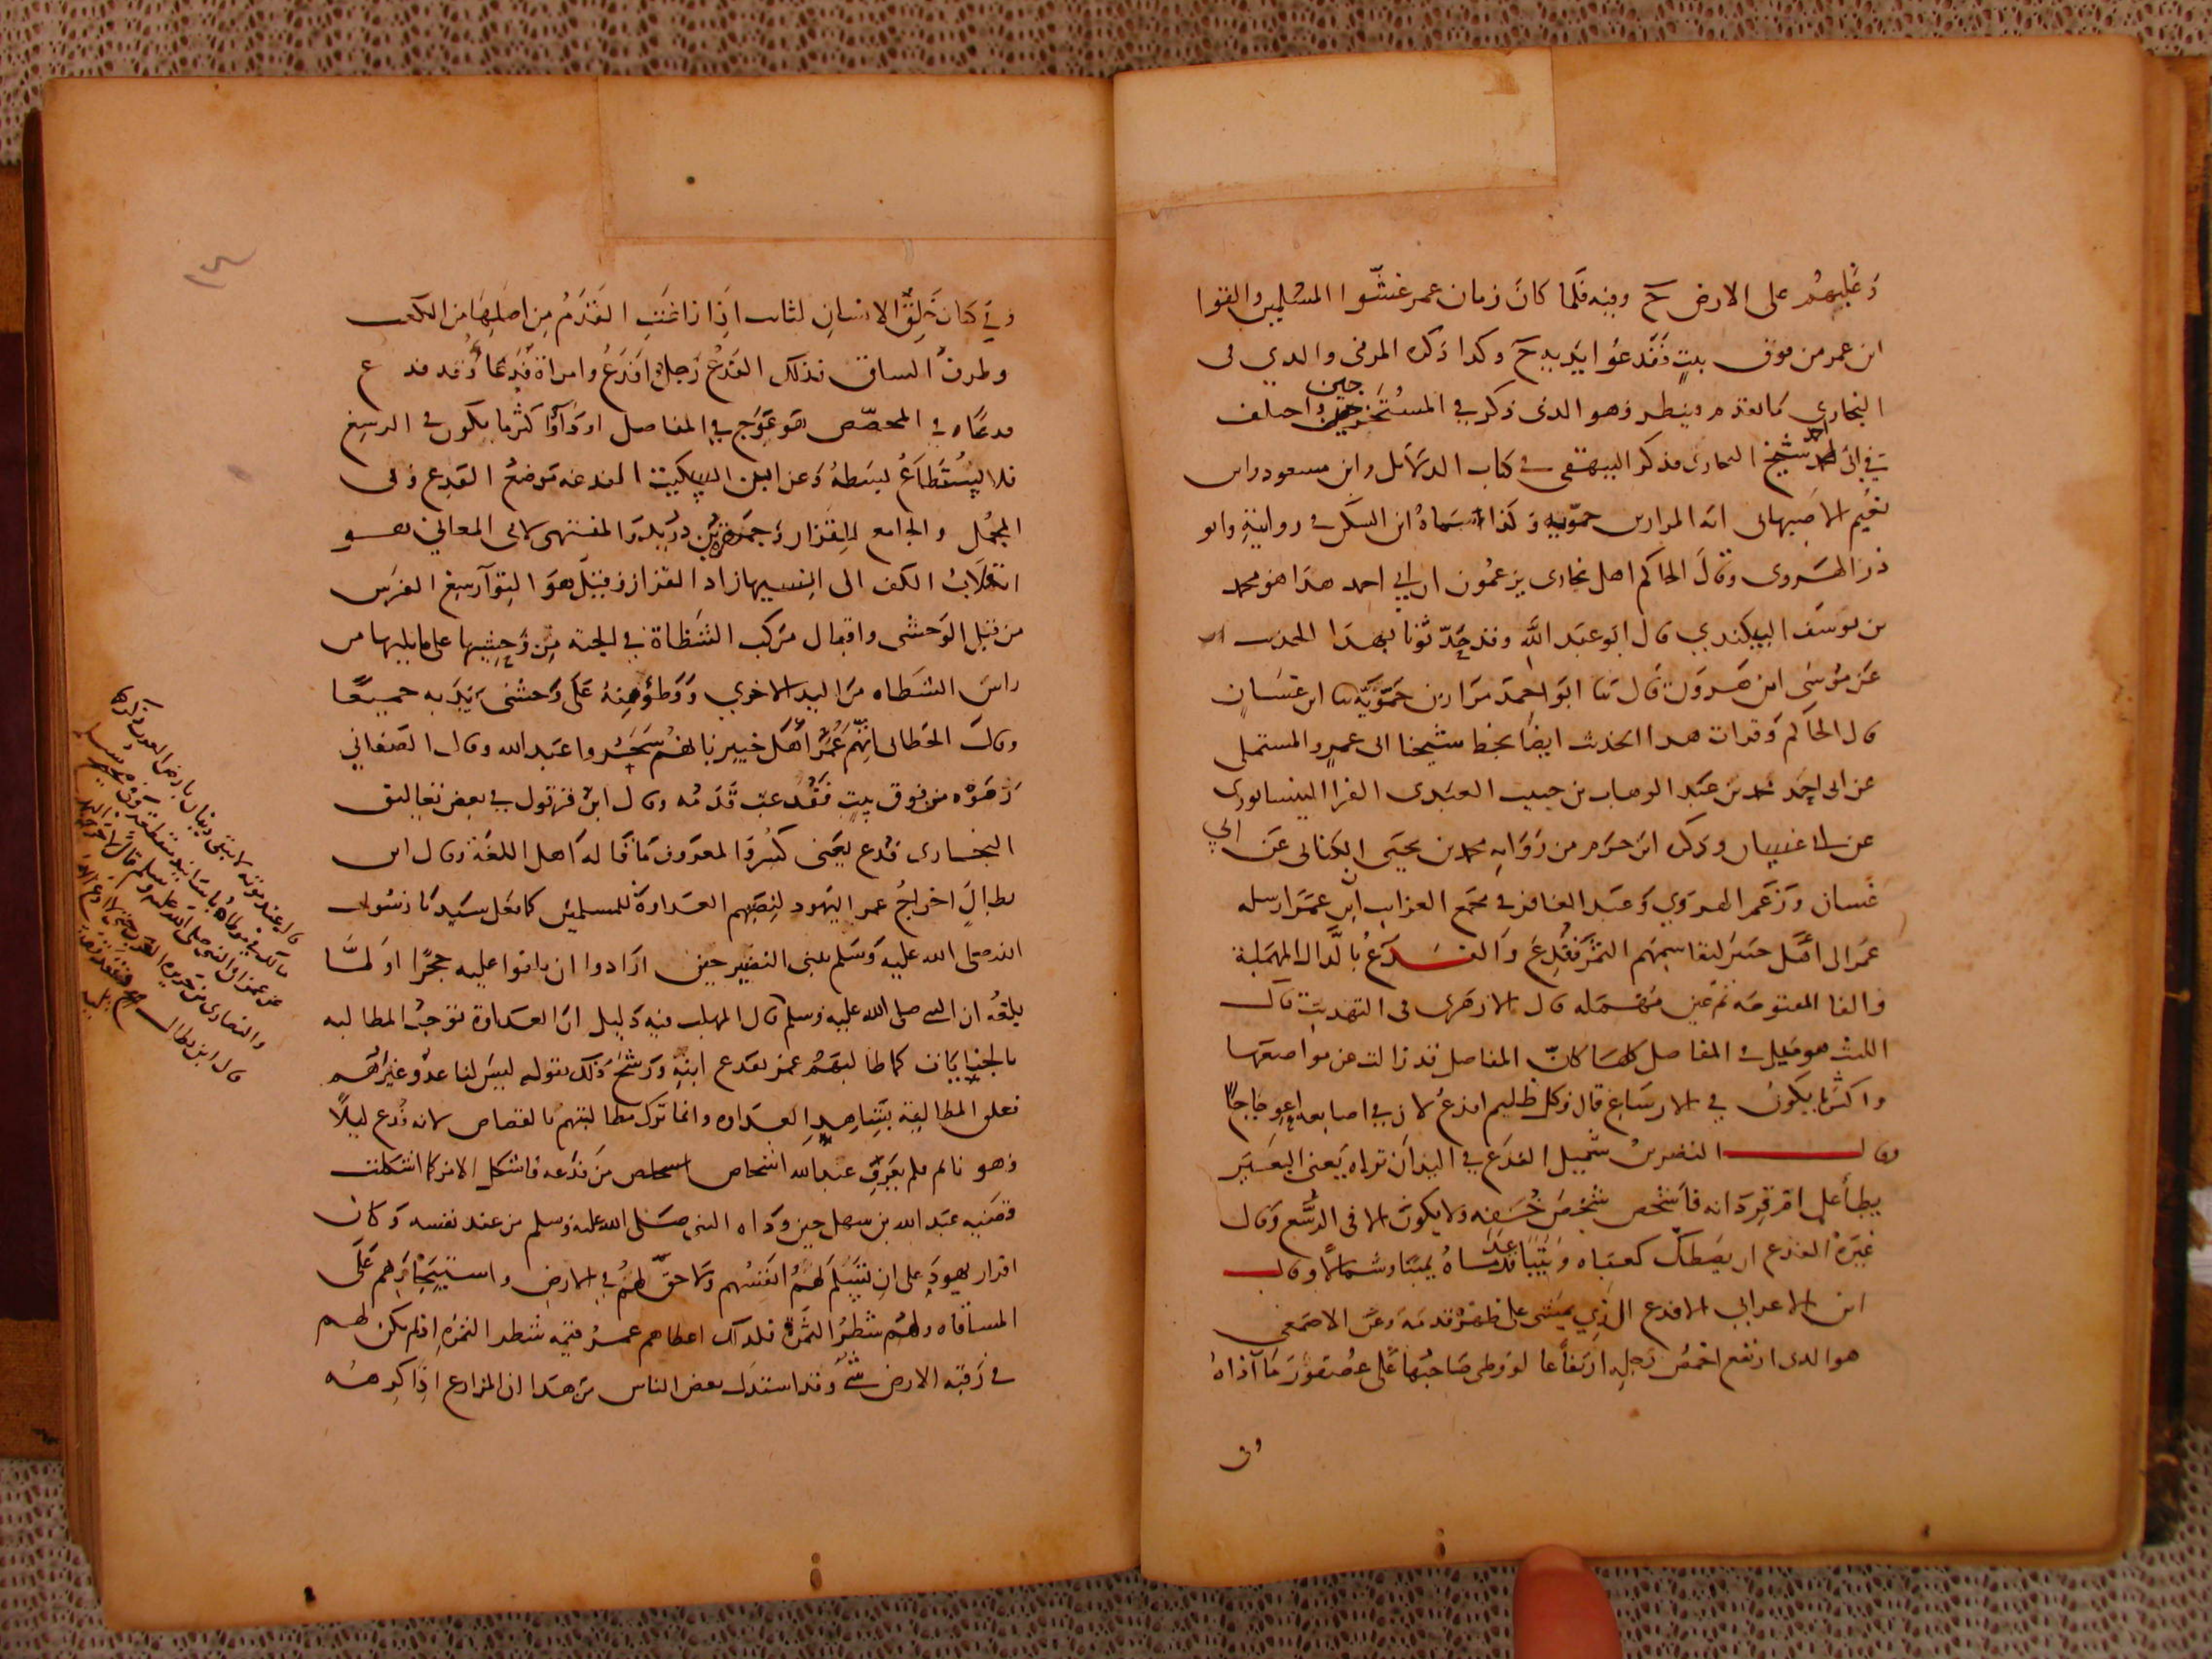 وغلبهم على الارض ح وفيه فلما كان زمان عمر غشوا المسلمين والقوا
ابن عمر من فوق بيت ففدعوا يديه ح وكذا ذكره المزني والذي في
البخاري كما تقدم فينظر وهو الذي ذكر في المستخرجين واختلف
في ابي احمد شيخ البخاري فذكر البيهقي في كتاب الدلائل وابن مسعود وابن
نعيم الاصبهاني انه المرار بن حمويه وكذا سماه ابن السكن في روايته وابو
ذر الهروي وقال الحاكم اهل بخارى يزعمون ان ابي احمد هذا هو محمد
بن يوسف البيكندي قال ابو عبد الله وقد حدثونا بهذا الحديث
عن موسى بن هرون قال ثنا ابو احمد مرار بن حمويه ثنا ابن غسان
قال الحاكم وقرات هذا الحديث ايضا بخط شيخنا ابي عمرو المستملي
عن ابي احمد محمد بن عبد الوهاب بن حبيب العبدي الفرا النيسابوري
عن ابي غسان وذكره ابن حزم من رواية محمد بن يحيى الكناني عن ابي
غسان وزعم الهروي وعبد الغافر في مجمع الغرايب ابن عمر ارسله
عمر الى اهل خيبر ليقاسمهم الثمر ففدع والفدع بالدال المهملة
والفا المفتوحة ثم عين مهملة قال الازهري في التهذيب قال
الليث هو ميل في المفاصل كلها كان المفاصل قد زالت عن مواضعها
واكثر ما يكون في الارساغ قال وكل ظليم افدع لان في اصابعه اعوجاجا
وقال النضر بن شميل الفدع في اليد ان تراه يعني البعير
يطأ على ام قردانه فاشخص شخص خفه ولا يكون الا في الرسغ وقال
غيره الفدع ان يصطك كعباه وتتباعد قدماه يمينا وشمالا وقال
ابن الاعرابي الافدع الذي يمشي على ظهر قدمه وعن الاصمعي
هو الذي ارتفع اخمص رجله ارتفاعا لو وطى صاحبها على عصفور ما آذاه
وفي
وفي كتاب خلق الانسان لثابت اذا زاغت القدم من اصلها من الكعب
وطرف الساق فذلك الفدع رجل افدع وامراة فدعا وقد فدع
فدعا وفي المخصص هو عوج في المفاصل او داء واكثر ما يكون في الرسغ
فلا يستطاع بسطه وعن ابن السكيت الفدعة موضع الفدع وفي
المجمل والجامع للقزاز وجمهرة بن دريد والمنتهى لابي المعالي هو
انقلاب الكف الى انسيها زاد القزاز وقيل هو التواء رسغ الفرس
من قبل الوحشي واقبال مركب الشظاة في الجنة من وحشيها على ما يليها من
راس الشظاه من اليد الاخرى ووطؤ منه على وحشي يديه جميعا
وقال الخطابي انهم عمر اهل خيبر بانهم سحروا عبد الله وقال الصغاني
رموه من فوق بيت ففدعت قدمه وقال ابن قرقول في بعض تعاليق
البخاري فدع يعني كسر والمعروف ما قاله اهل اللغة وقال ابن
بطال اخراج عمر اليهود لنصبهم العداوة للمسلمين كما فعل سيدنا رسول
الله صلى الله عليه وسلم ببني النضير حين ارادوا ان يلقوا عليه حجرا او لما
بلغه ان النبي صلى الله عليه وسلم قال المهلب فيه دليل ان العداوة توجب المطالبه
بالجنايات كما طالبهم عمر بفدع ابنه ورشح ذلك بقوله ليس لنا عدو غيرهم
فعلق المطالبة بشاهد العداوه وانما ترك مطالبتهم بالقصاص لانه فدع ليلا
وهو نائم فلم يعرف عبد الله اشخاص من فدعه فاشكل الامر كما اشكلت
قضية عبد الله بن سهل حين وداه النبي صلى الله عليه وسلم من عند نفسه وكان
اقرار يهود على ان تسلم لهم انفسهم ولا حق لهم في الارض واستيجارهم على
المساقاه ولهم شطر الثمرة فلذلك اعطاهم عمر قيمة شطر الثمره اذ لم يكن لهم
في رقبة الارض شي وقد استدل بعض الناس من هذا ان المزارع اذا كرهه